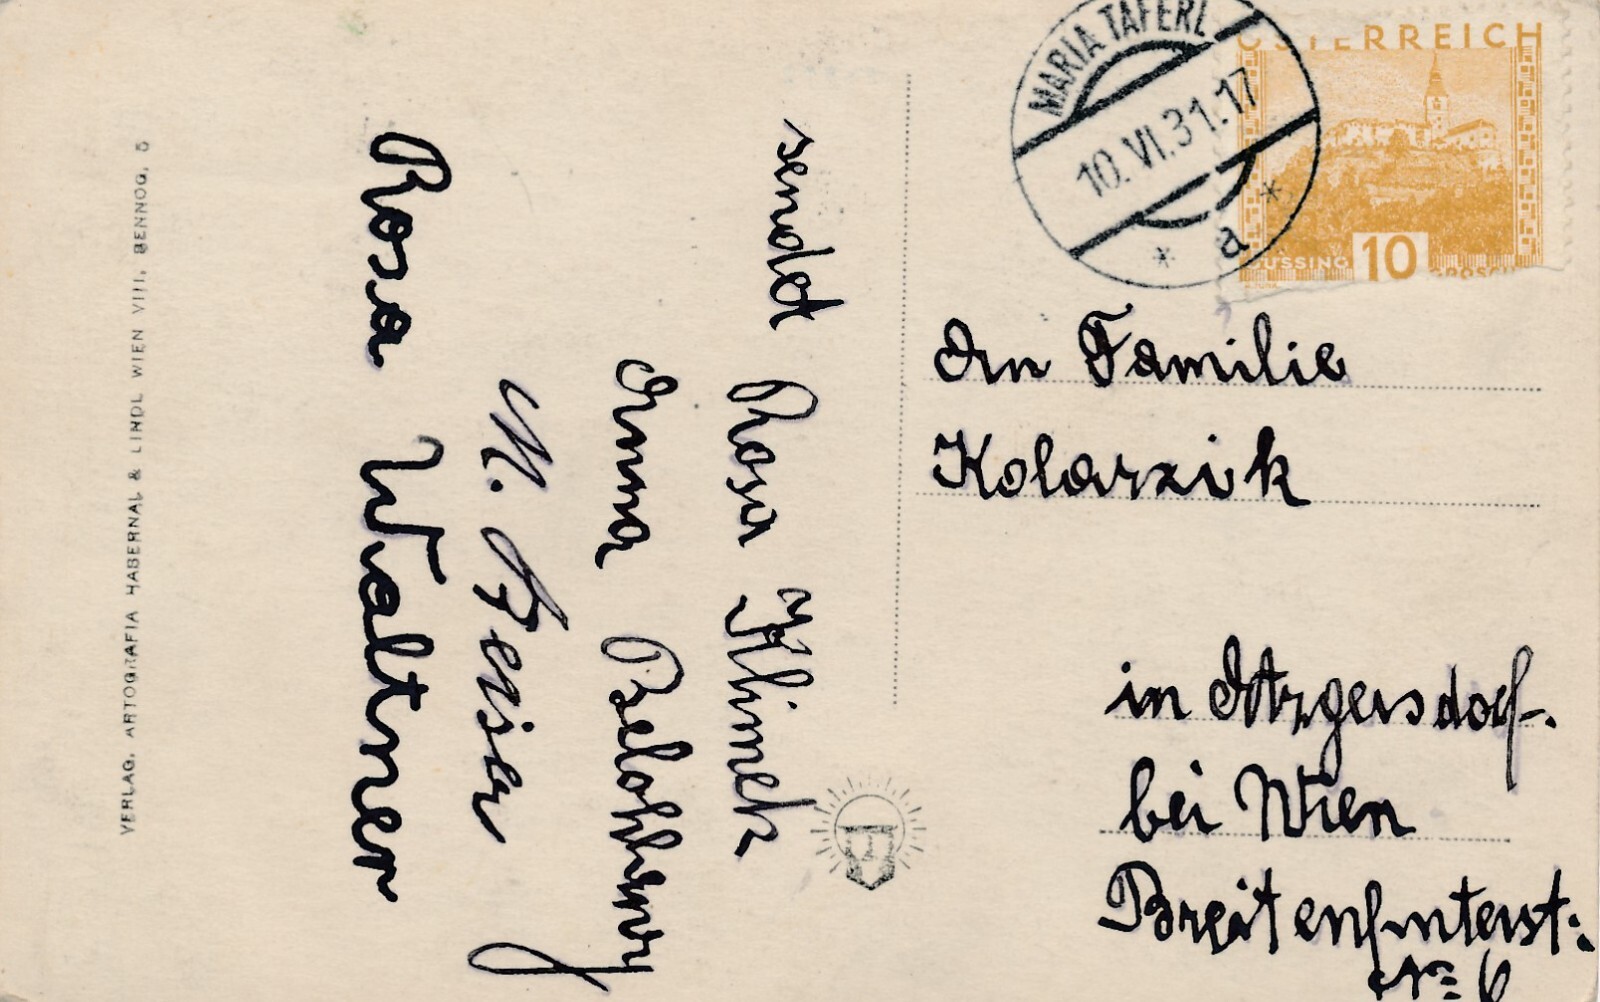 MARIA TAFERL
10.VI.31.17
* a *
ÖSTERREICH
GÜSSING 10 GROSCHEN
An Familie
Kolarzik
in Atzgersdorf.
bei Wien
Breitenfurterst:
№ 6
sendet
Rosa Klimek
Anna Belohlavy
Rosa Waltner
VERLAG. ARTOGRAFIA HABERNAL & LINDL WIEN VIII. BENNOG. 5